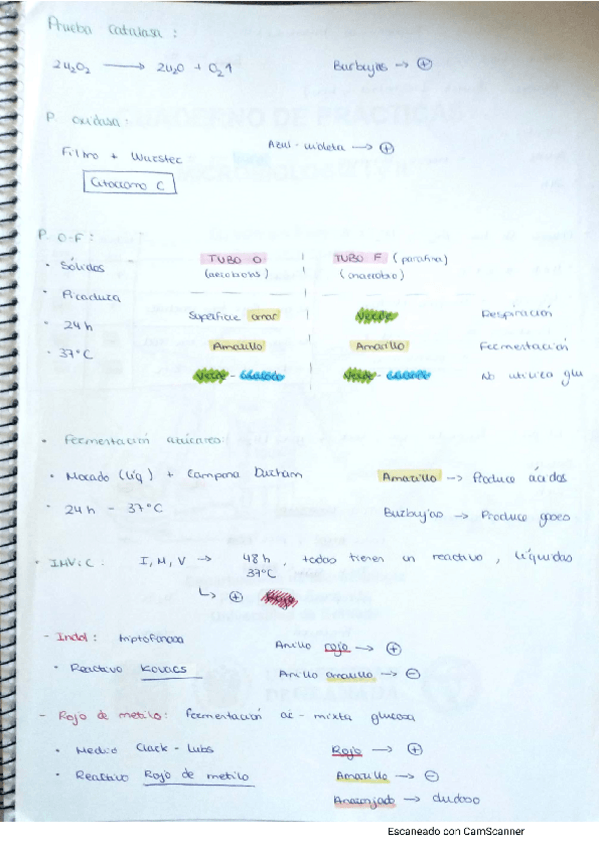 Prueba catalasa :
2H₂O₂ ⟶ 2H₂O + O₂↑ Burbujas → ⊕
P. oxidasa :
Filtro + Wurster Azul - violeta → ⊕
Citocromo C
P. O-F :
· Sólidos TUBO O TUBO F (parafina)
(aerobiosis) (anaerobio)
· Picadura
Superficie amar Verde Respiración
· 24 h
· 37°C Amarillo Amarillo Fermentación
Verde - Verde - No utiliza glu
· Fermentación azúcares:
· Morado (líq) + Campana Durham Amarillo → Produce ácidos
· 24 h - 37°C Burbujas → Produce gases
· IMViC : I, M, V → 48 h , todas tienen un reactivo , líquidas
37°C
↳ ⊕
- Indol : triptofanasa Anillo rojo → ⊕
· Reactivo Kovacs Anillo amarillo → ⊖
- Rojo de metilo : fermentación ác - mixta glucosa
· Medio Clark - Lubs Rojo → ⊕
· Reactivo Rojo de metilo Amarillo → ⊖
Anaranjado → dudoso
Escaneado con CamScanner